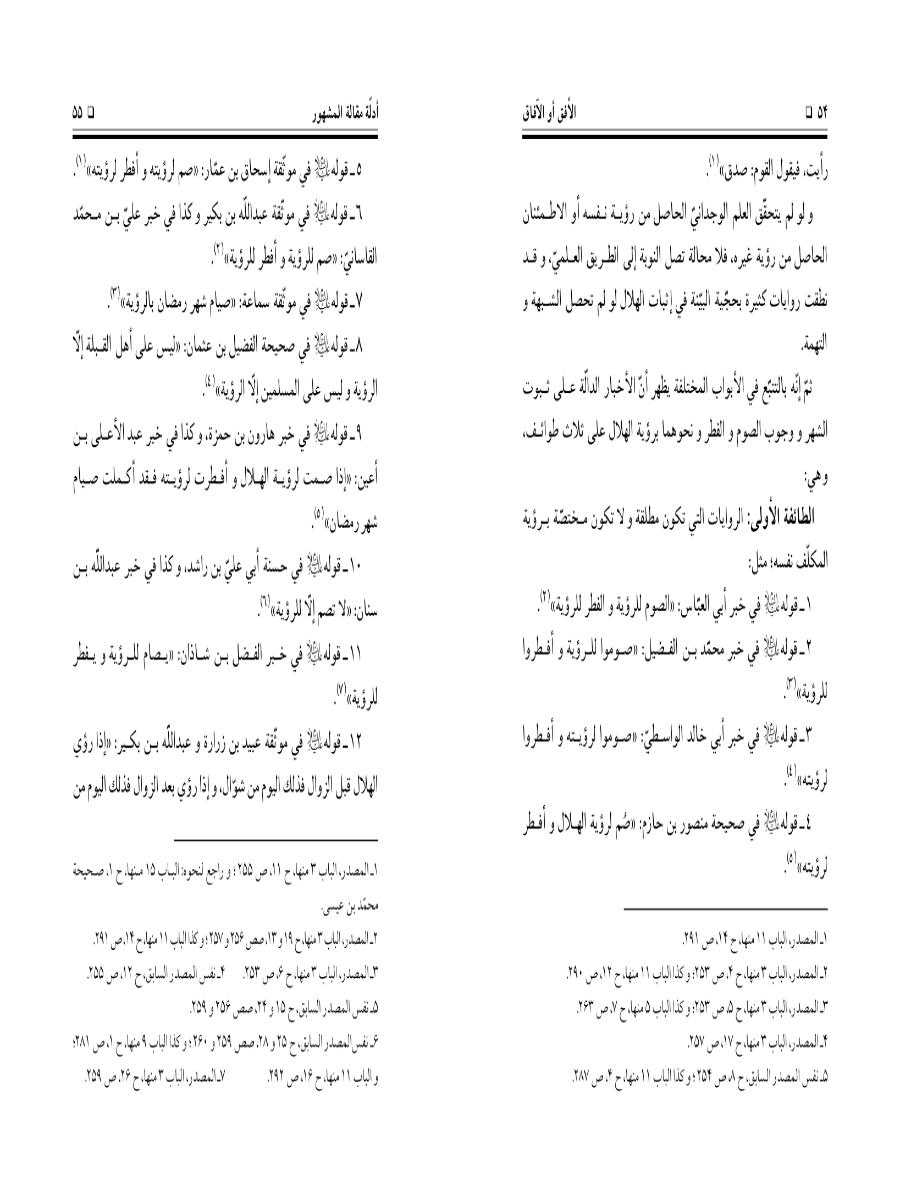 ٥٤ □ الأفق أو الآفاق
رأيت، فيقول القوم: صدق»(١).
و لو لم يتحقّق العلم الوجدانيّ الحاصل من رؤيـة نـفسه أو الاطـمئنان
الحاصل من رؤية غيره، فلا محالة تصل النوبة إلى الطـريق العـلميّ، و قـد
نطقت روايات كثيرة بحجّية البيّنة في إثبات الهلال لو لم تحصل الشـبهة و
التهمة.
ثمّ إنّه بالتتبّع في الأبواب المختلفة يظهر أنّ الأخبار الدالّة عـلى ثـبوت
الشهر و وجوب الصوم و الفطر و نحوهما برؤية الهلال على ثلاث طوائـف،
و هي:
الطائفة الأولى: الروايات التي تكون مطلقة و لا تكون مـختصّة بـرؤية
المكلّف نفسه؛ مثل:
١ـ قوله ﷷ في خبر أبي العبّاس: «الصوم للرؤية و الفطر للرؤية»(٢).
٢ـ قوله ﷷ في خبر محمّد بـن الفـضيل: «صـوموا للـرؤية و أفـطروا
للرؤية»(٣).
٣ـ قوله ﷷ في خبر أبي خالد الواسـطيّ: «صـوموا لرؤيـته و أفـطروا
لرؤيته»(٤).
٤ـ قوله ﷷ في صحيحة منصور بن حازم: «صُم لرؤية الهـلال و أفـطر
لرؤيته»(٥).
١ـ المصدر، الباب ١١ منها، ح ١٤، ص ٢٩١.
٢ـ المصدر، الباب ٣ منها، ح ٤، ص ٢٥٣؛ و كذا الباب ١١ منها، ح ١٢، ص ٢٩٠.
٣ـ المصدر، الباب ٣ منها، ح ٥، ص ٢٥٣؛ و كذا الباب ٥ منها، ح ٧، ص ٢٦٣.
٤ـ المصدر، الباب ٣ منها، ح ١٧، ص ٢٥٧.
٥ـ نفس المصدر السابق، ح ٨، ص ٢٥٤؛ و كذا الباب ١١ منها، ح ٤، ص ٢٨٧.
أدلّة مقالة المشهور □ ٥٥
٥ـ قوله ﷷ في موثّقة إسحاق بن عمّار: «صم لرؤيته و أفطر لرؤيته»(١).
٦ـ قوله ﷷ في موثّقة عبداللّه بن بكير و كذا في خبر عليّ بـن مـحمّد
القاسانيّ: «صم للرؤية و أفطر للرؤية»(٢).
٧ـ قوله ﷷ في موثّقة سماعة: «صيام شهر رمضان بالرؤية»(٣).
٨ـ قوله ﷷ في صحيحة الفضيل بن عثمان: «ليس على أهل القـبلة إلّا
الرؤية و ليس على المسلمين إلّا الرؤية»(٤).
٩ـ قوله ﷷ في خبر هارون بن حمزة، و كذا في خبر عبد الأعـلى بـن
أعين: «إذا صـمت لرؤيـة الهـلال و أفـطرت لرؤيـته فـقد أكـملت صـيام
شهر رمضان»(٥).
١٠ـ قوله ﷷ في حسنة أبي عليّ بن راشد، و كذا في خبر عبداللّه بـن
سنان: «لا تصم إلّا للرؤية»(٦).
١١ـ قوله ﷷ في خـبر الفـضل بـن شـاذان: «يـصام للـرؤية و يـفطر
للرؤية»(٧).
١٢ـ قوله ﷷ في موثّقة عبيد بن زرارة و عبداللّه بـن بكـير: «إذا رؤي
الهلال قبل الزوال فذلك اليوم من شوّال، و إذا رؤي بعد الزوال فذلك اليوم من
١ـ المصدر، الباب ٣ منها، ح ١١، ص ٢٥٥؛ و راجع لنحوه: البـاب ١٥ مـنها، ح ١، صـحيحة
محمّد بن عيسى.
٢ـ المصدر، الباب ٣ منها، ح ١٩ و ١٣، صص ٢٥٦ و ٢٥٧؛ و كذا الباب ١١ منها، ح ١٤، ص ٢٩١.
٣ـ المصدر، الباب ٣ منها، ح ٦، ص ٢٥٣. ٤ـ نفس المصدر السابق، ح ١٢، ص ٢٥٥.
٥ـ نفس المصدر السابق، ح ١٥ و ٢٤، صص ٢٥٦ و ٢٥٩.
٦ـ نفس المصدر السابق، ح ٢٥ و ٢٨، صص ٢٥٩ و ٢٦٠؛ و كذا الباب ٩ منها، ح ١، ص ٢٨١؛
و الباب ١١ منها، ح ١٦، ص ٢٩٢. ٧ـ المصدر، الباب ٣ منها، ح ٢٦، ص ٢٥٩.